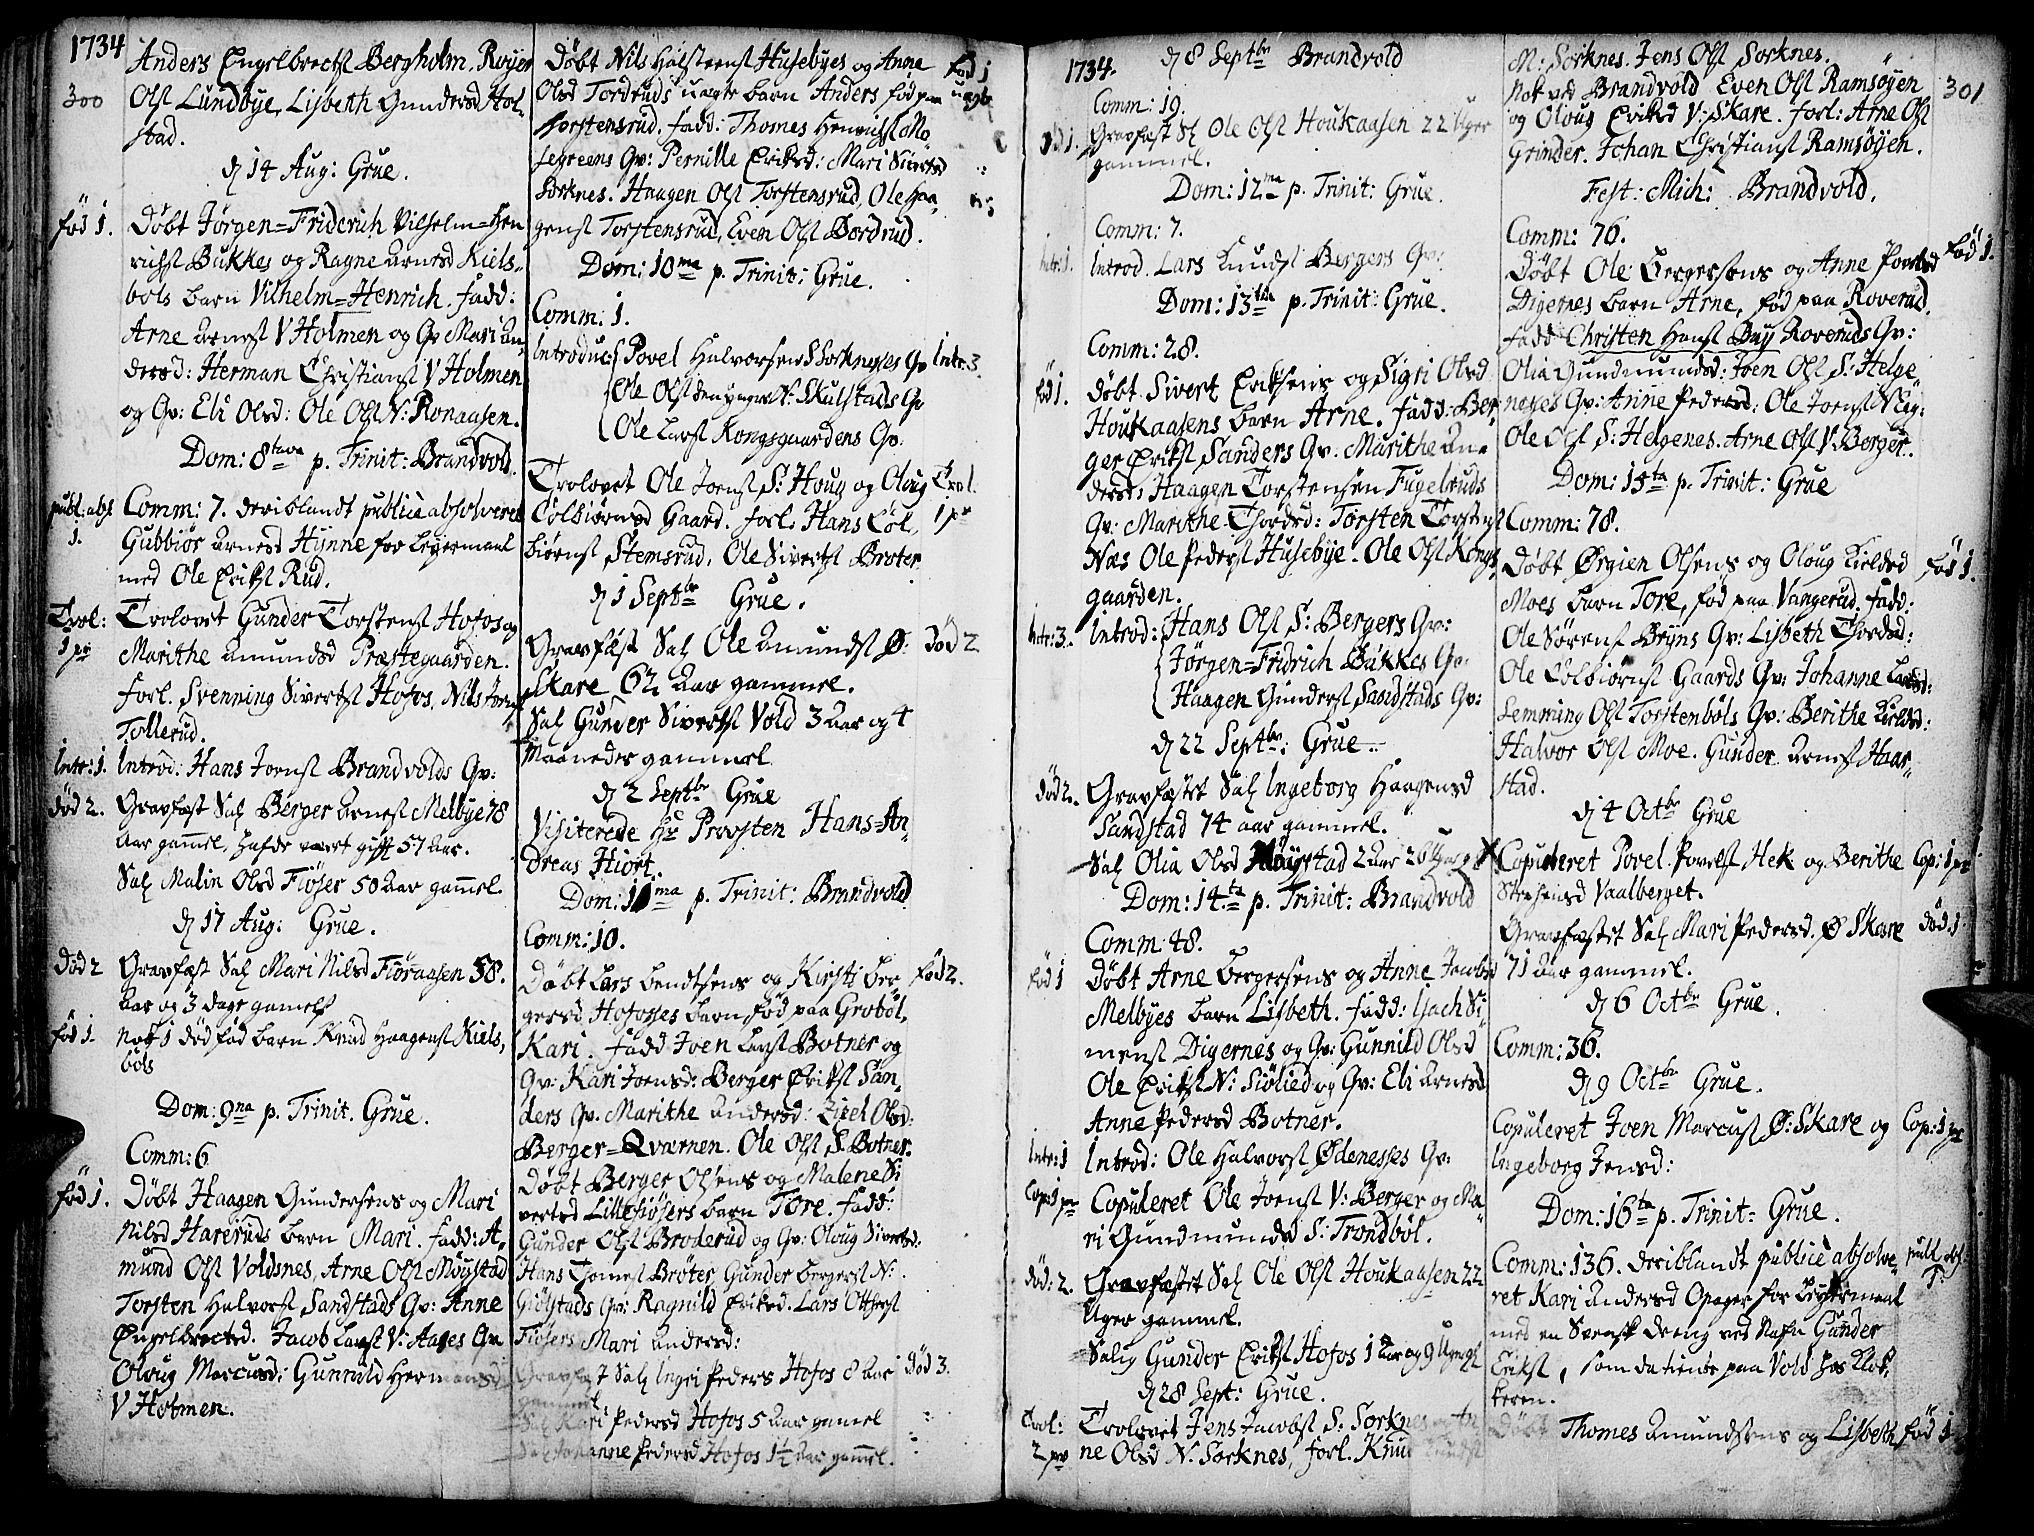 1734
300
Anders Engelbrectst Bergholm, Royer
Olst Lundbye, Lisbeth Gundersd Hol-
stad.
d 14 Aug: Grue.
fød 1.
Døbt Jørgen=Friderich Vilhelm=Hen
richst Bukkes og Ragne Arnesd Kiels-
bøls barn Vilhelm=Henrich. fadd:
Arne Arnest V Holmen og Qv Mari An-
dersd: Herman Christianst V Holmen
og Qv: Eli Olsd: Ole Olst N: Ronaasen.
Dom: 8tava p. Trinit: Brandvold.
publ. abs
1.
Comm: 7. deriblandt publicè absolveret
Gubbiør Arnesd Hynne for Leyermaal
med Ole Erikst Rud.
Trol:
1 pr
Trolovet Gunder Torstenst Hofos og
Marithe Amundsd Præstegaarden.
forl. Svenning Sivertst Hofos, Nils Joenst
Tollerud.
Intr: 1.
Introd: Hans Joenst Brandvolds Qv:
død 2.
Gravfæst Sal Berger Arnest Melbye 78
Aar gamel, hafde været gift 57 Aar.
Sal Malin Olsd Fiøser 50 Aar gamel.
d 17 Aug: Grue.
død 2
Gravfæst Sal Mari Nilsd Fiøraasen 58.
Aar og 3 dage gamel
fød 1.
Nok 1 død fød barn Knud Haagenst Kiels,
bøls
Dom: 9na p. Trinit. Grue.
Comm: 6
fød 1.
Døbt Haagen Gundersens og Mari
Nilsd Hareruds barn Mari. fadd: A-
mund Olst Voldsnes, Arne Olst Møystad
Torsten Halvorst Sandstads Qv: Anne
Engelbrectsd. Jacob Larst V: Aages Qv
Oloug Marcusd: Gunnild Hermansd
V Holmen.
Døbt Nils Halsteenst Husebyes og Anne
Olsd Tordruds uægte barn Anders fød paa
Torstensrud, fadd: Thomes Henrichst Mo
segreens Qv: Pernille Eriksd: Mari Sivertsd
Sorknes. Haagen Olst Torstensrud, Ole Haa,
genst Torstensrud, Even Olst Bordrud.
fød 1
uægte
Dom: 10ma p. Trinit: Grue.
Comm: 1.
Introduc: Povel Halvorsens S Sorkneses Qv
Ole Olst den yngre N: Skulstads Qv
Ole Larst Kongsgaardens Qv.
Intr: 3.
Trolovet Ole Joenst S: Houg og Oloug
Colbiørnsd Gaard. forl: Hans Col,
biørnst Stemsrud, Ole Sivertst Brøter
Trol.
1 pr
d 1 Septbr Grue.
Gravfæst Sal Ole Amundst Ø:
Skare 62 Aar gammel.
Sal Gunder Sivertst Vold 3 Aar og 4
Maaneder gammel
død 2
d 2 Septbr Grue
Visiterede Hr Provsten Hans=An-
dreas Hiort.
Dom: 11ma p. Trinit: Brandvold
Comm: 10.
Døbt Lars Bendtsens og Kirsti Ber-
gersd Hofosses barn, fød paa Grobøl,
Kari. fadd Joen Larst Botner og
Qv: Kari Joensd: Berger Erikst San,
ders Qv. Marithe Andersd: Zidel Olsd:
Berger=Qvernen. Ole Olst S. Botner.
fød 2.
Døbt Berger Olsens og Malene Si
vertsd Lillefiøsers barn Tore. fadd:
Gunder Olst Broderud og Qv: Oloug Sivertsd:
Hans Thomest Brøter, Gunder Bergerst N:
Giølstads Qv: Ragnild Eriksd. Lars Otterst
Fiøsers Mari Andersd:
Gravfæst Sal Ingri Peders Hofos 8 Aar
gammel
død 3.
Sal Kari Pedersd Hofos 5 Aar gamel
Sal Johanne Pedersd Hofos 1½ Aar gamel.
1734.
d 8 Septbr Brandvold
Comm: 19.
død 1.
Gravfæst Sal Ole Olst Houkaasen 22 Uger
gammel.
Dom: 12ma p. Trinit: Grue.
Comm: 7.
Intr: 1.
Introd. Lars Knudst Bergers Qv:
Dom: 13tia p. Trinit: Grue.
Comm: 28.
fød 1.
Døbt Sivert Eriksens og Sigri Olsd
Houkaasens barn Arne. fadd: Ber,
ger Erikst Sanders Qv. Marithe An-
dersd: Haagen Torstensen Fugelruds
Qv: Marithe Thordsd: Torsten Torstenst
Næs Ole Pederst Husebye. Ole Olst Kongs,
gaarden.
Intr: 3.
Introd: Hans Olst S: Bergers Qv:
Jørgen=Fridrich Bukkes Qv:
Haagen Gunderst Sandstads Qv:
d 22 Septbr: Grue.
død 2.
Gravfæstet Sal Ingeborg Haagensd
Sandstad 74 aar gammel.
Sal Olia Olsd Møystad 2 Aar 26 Uger
Dom: 14ta p. Trinit: Brandvold
Comm: 48.
fød 1
Døbt Arne Bergersens og Anne Jacobsd
Melbyes barn Lisbeth. fadd: Isach Si
menst Digernes og Qv: Gunnild Olsd
Ole Erikst N: Siølied og Qv: Eli Arnesd
Anne Pedersd Botner.
Intr: 1
Introd: Ole Halvorst Ødenesses Qv:
Cop: 1 pr
Copuleret Ole Joenst V: Berger og Ma-
ri Gundmundsd S: Trondbøl.
død: 2.
Gravfæstet Sal Ole Olst Houkaasen 22
Uger gammel.
Salig Gunder Erikst Hofos 1 Aar og 9 Uger
d 28 Sept: Grue.
Trol:
2 pr
Trolovet Jens Jacobst S: Sorknes og An
ne Olsd N. Sorknes, forl. Knud Knudst
M: Sorknes. Jens Olst Sorknes.
Nok ved Brandvold Even Olst Ramsøyen
og Oloug Eriksd V: Skare. forl: Arne Olst
Grinder. Johan Christianst Ramsøyen.
301
Fest: Mich: Brandvold.
Comm: 76.
Døbt Ole Bergersens og Anne Povelsd
Digernes barn Arne, fød paa Roverud.
fadd Christen Hanst Bay Roveruds Qv:
Olia Gundmundsd: Joen Olst S: Helge
neses Qv: Anne Pedersd: Ole Joenst
Ole Olst S: Helgenes. Arne Olst V: Berger.
fød 1.
Dom: 15ta p. Trinit: Grue
Comm: 78.
Døbt Ørgien Olsens og Oloug Kieldsd
Moes barn Tore, fød paa Vangerud. fadd:
Ole Sørenst Bryns Qv: Lisbeth Thordsd:
Ole Colbiørnst Gaards Qv: Johanne Larsd:
Lemming Olst Torstenbøls Qv: Berithe Kieldsd:
Halvor Olst Moe. Gunder Arnest Haar-
stad.
fød 1.
d 4 Octbr Grue
Copuleret Povel Povelst Hek og Berithe
Stephensd Vaalberget.
Cop: 1 pr
Gravfæstet Sal Mari Pedersd. Ø Skare
71 Aar gammel.
død. 1
d 6 Octbr Grue.
Comm: 36.
d 9 Octbr Grue.
Copuleret Joen Marcust Ø: Skare og
Ingeborg Jensd:
Cop: 1 pr
Dom: 16ta p. Trinit: Grue.
Comm: 136. deriblandt publicè absolve-
ret Kari Andersd Opager for Leyermaal
med en Svensk dreng ved Nafn Gunder
Erikst, som da tiente paa Vold hos Klok,
keren.
publ. abs.
1.
Døbt Thomes Amundsens og Lisbeth
fød 1